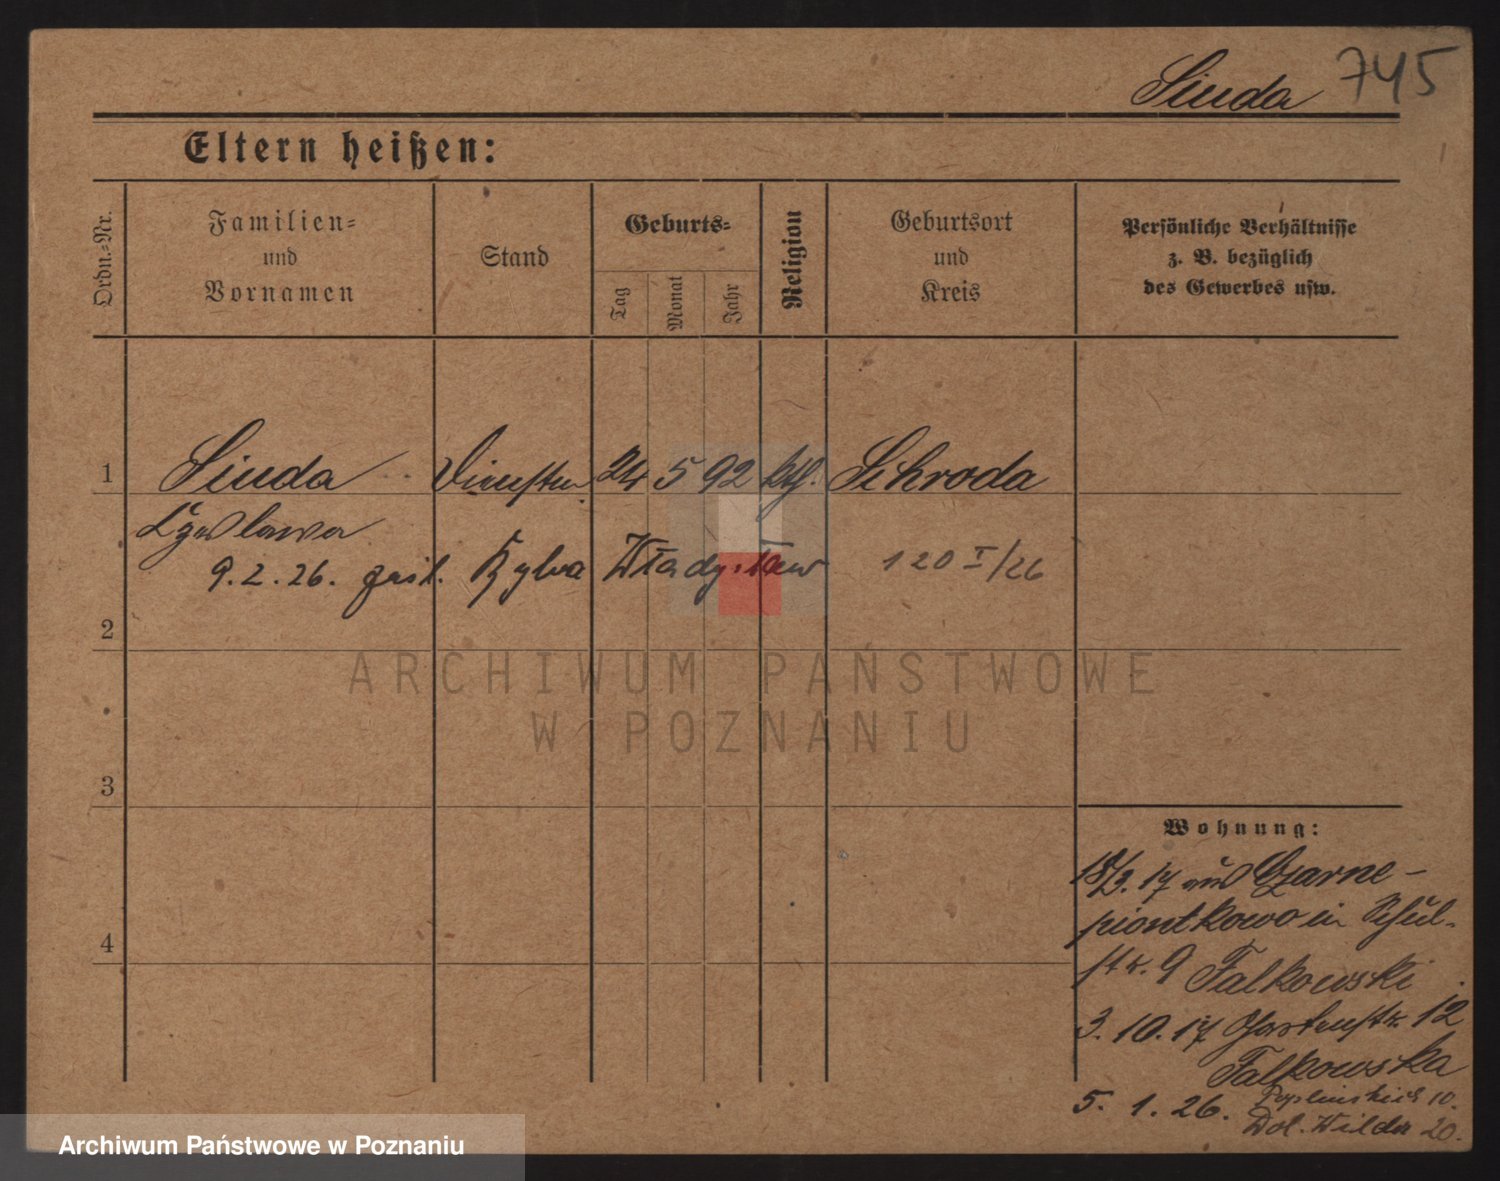 Siuda 745
Eltern heißen:
Ordn.-Nr.
Familien-
und
Vornamen
Stand
Geburts-
Tag
Monat
Jahr
Religion
Geburtsort
und
Kreis
Persönliche Verhältnisse
z. B. bezüglich
des Gewerbes usw.
1 Siuda 24 5 92 kth. Schroda
9.2.26. Władysław 120 I/26
2
3
4
Wohnung:
18/3. 17 aus Czarne-
piontkowo in Schul-
str. 9 Falkowski
3. 10. 17 Gartenstr. 12
Falkowska
5. 1. 26. 10.
Dol. Wilda 20.
ARCHIWUM PAŃSTWOWE
W POZNANIU
Archiwum Państwowe w Poznaniu